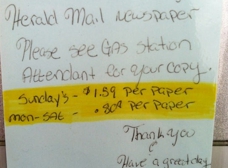 Herald Mail Newspaper
Please see GAS Station
Attendant for your Copy.
Sunday's - $1.59 per paper
mon-SAt - .80¢ per paper
Thank you
&
Have a great day